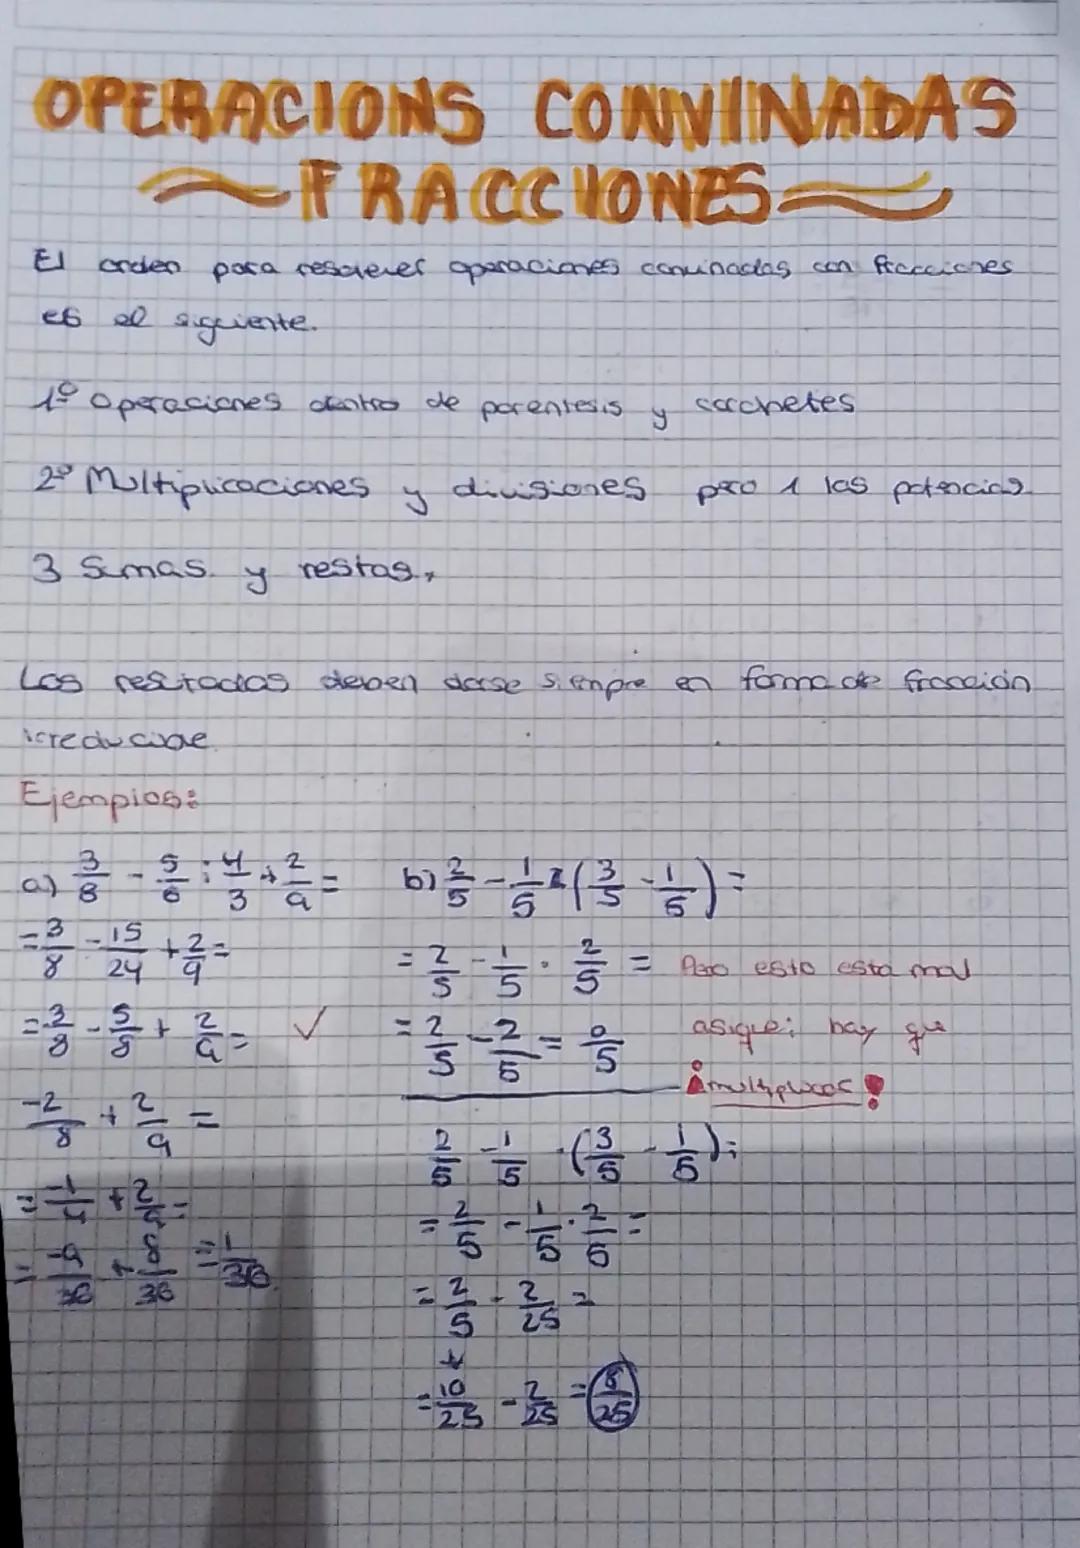 OPERACIONS CONVINADAS
FRACCIONES
El orden para resolever operaciones convinadas con fracciones
es el siguiente.
1º Operaciones dentro de parentesis y corchetes
2º Multiplicaciones y divisiones pero 1 las potencias
3 Sumas y restas,
Los resltados deben darse siempre en forma de fracción
irreducible.
Ejemplos:
a) 3/8 - 5/6 : 4/3 + 2/9 =
= 3/8 - 15/24 + 2/9 =
= 3/8 - 5/8 + 2/9 = ✓
-2/8 + 2/9 =
= -1/4 + 2/9 =
= -9/36 + 8/36 = -1/36
b) 2/5 - 1/5 · (3/5 - 1/5) =
= 2/5 - 1/5 · 2/5 = Pero esto esta mal
= 2/5 - 2/5 = 0/5 asique: hay que
¡multiplicar!
2/5 - 1/5 · (3/5 - 1/5) =
= 2/5 - 1/5 · 2/5 =
= 2/5 - 2/25 =
= 10/25 - 2/25 = 8/25